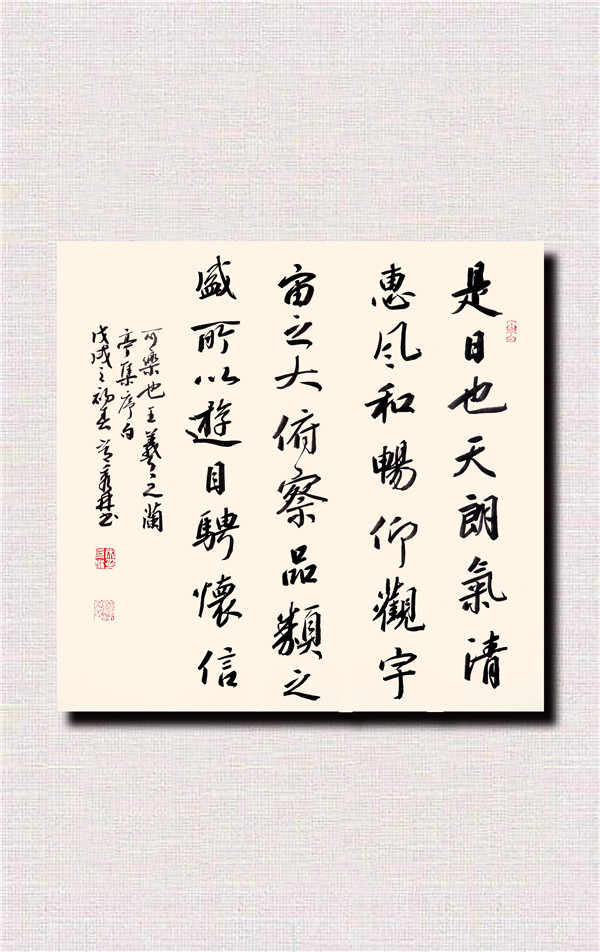 是日也天朗氣清
惠風和暢仰觀宇
宙之大俯察品類之
盛所以遊目騁懷信
可樂也王羲之蘭
亭集序句
戊戌之初春書